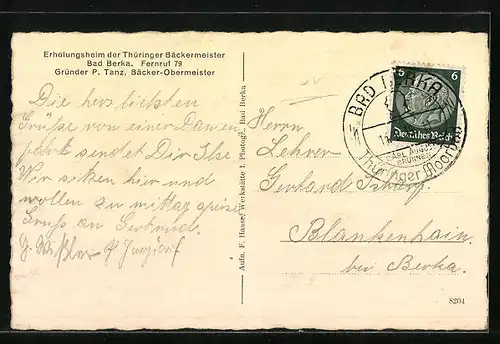 Erholungsheim der Thüringer Bäckermeister
Bad Berka. Fernruf 79
Gründer P. Tanz, Bäcker-Obermeister
Die herzlichsten
Grüße von einer Damen
fahrt sendet Dir Ilse.
Wir sitzen hier und
wollen zu mittag speise
Gruß an Gertrud.
Aufn. F. Haase, Werkstätte f. Photogr., Bad Berka
5 6
Deutsches Reich
BAD BERKA
CARL AUGUST
BRUNNEN
Thüringer Moorbad
Herrn
Lehrer
Gerhard
Blankenhain
bei Berka.
8204